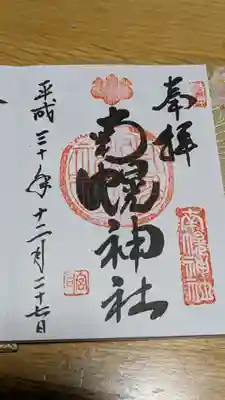 奉拝
南幌神社
平成三十年十二月二十七日
南幌神社